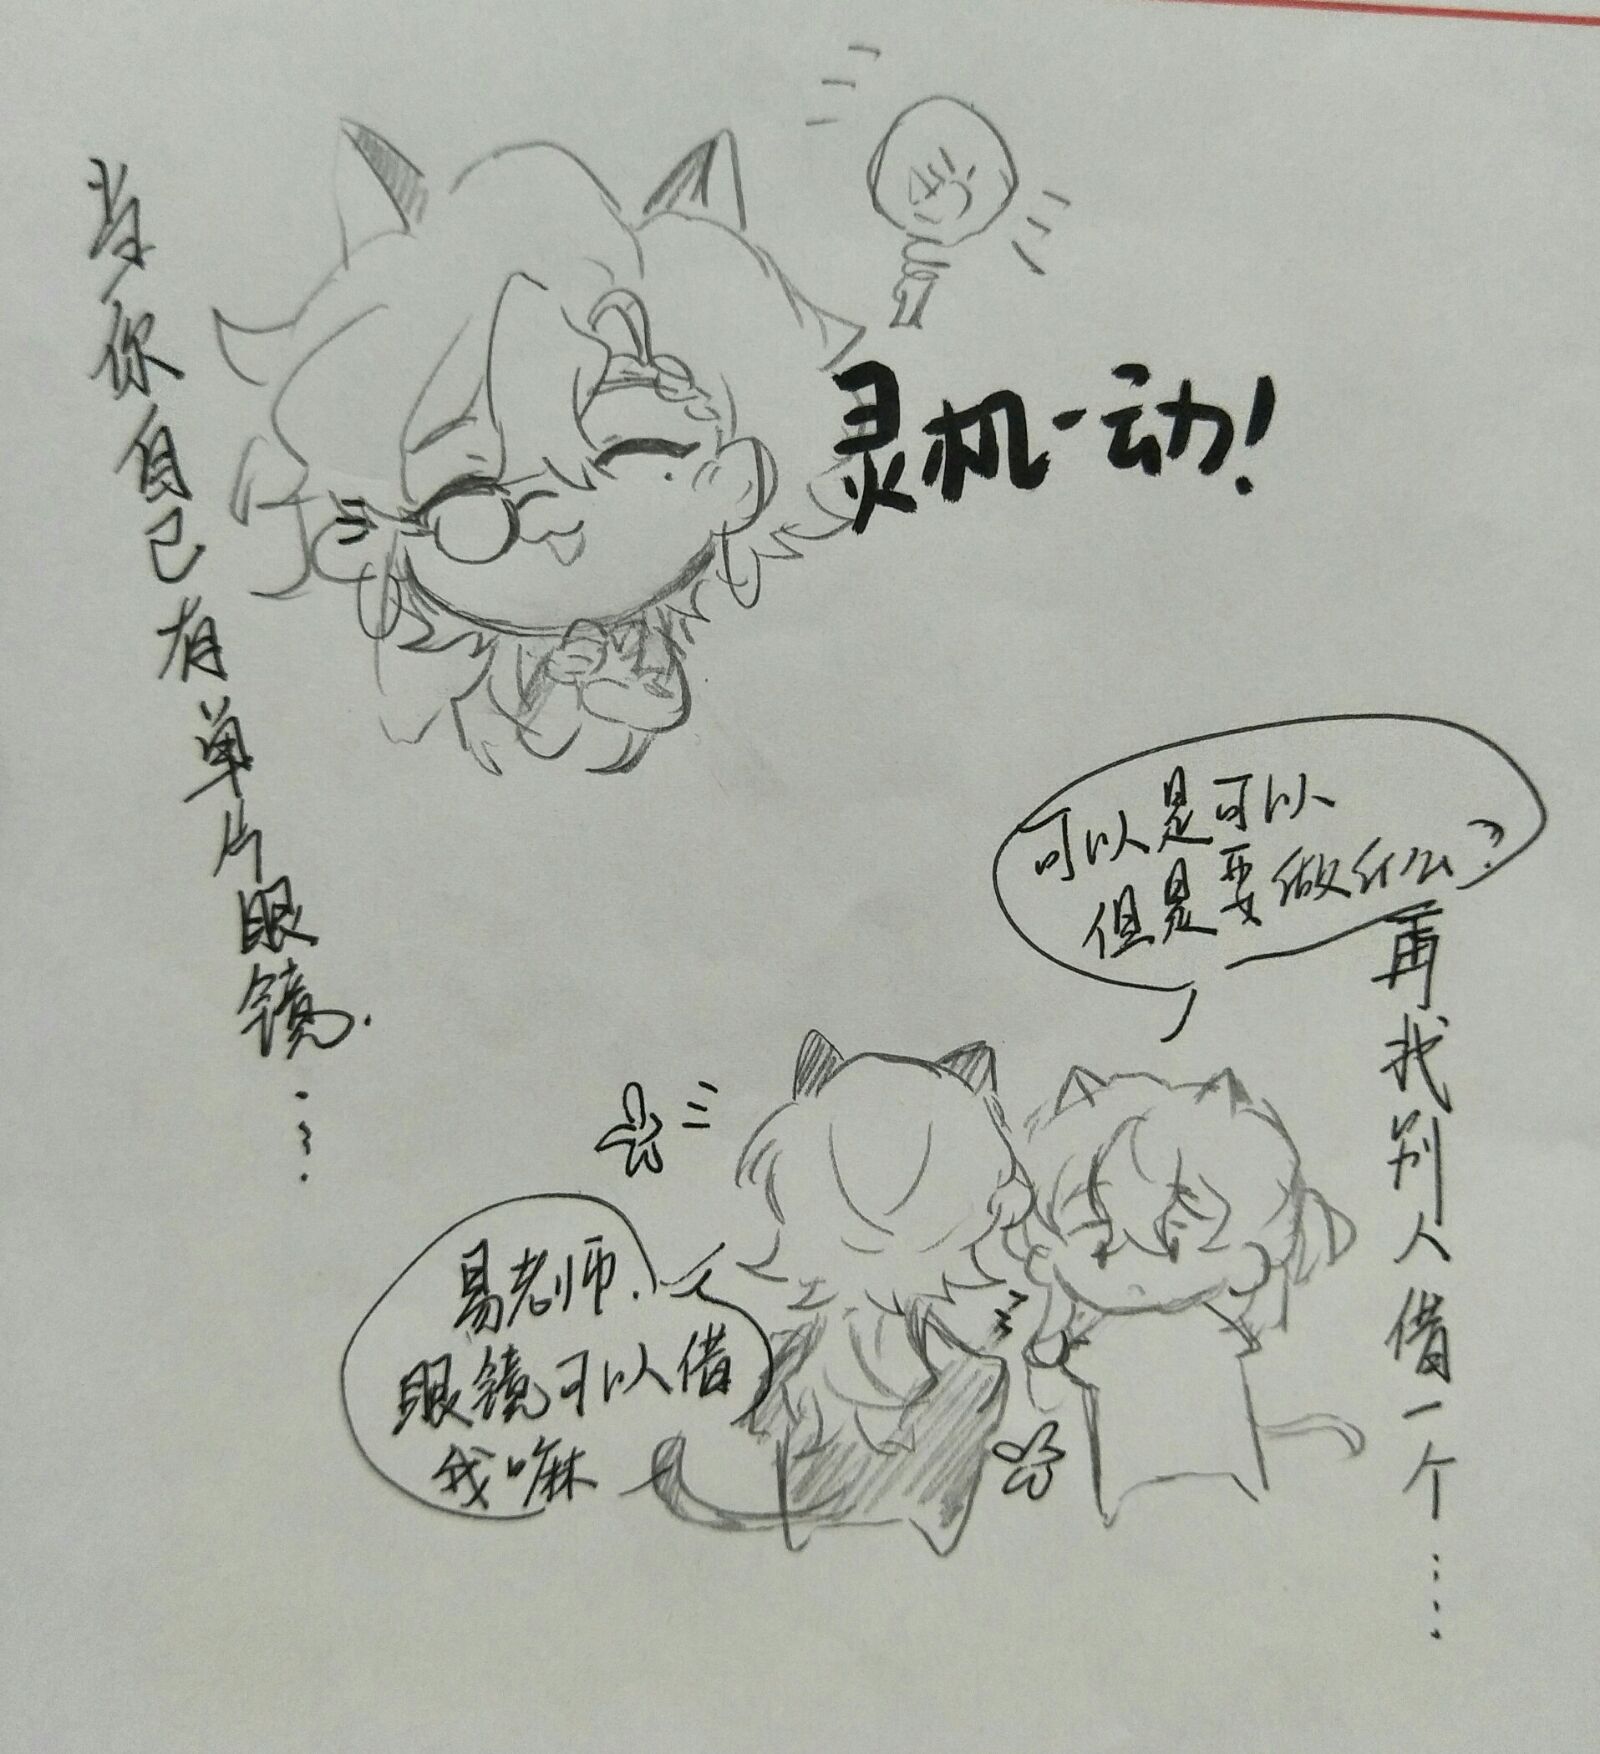 当你自己有单片眼镜.……
灵机一动!
可以是可以
但是要做什么?
再找别人借一个……
易老师.
眼镜可以借
我嘛